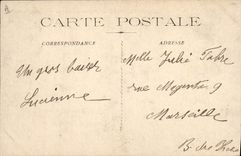 CARTE POSTALE
CORRESPONDANCE
ADRESSE
Un gros baiser
Lucienne
Melle Julie Fabre
rue Magenta 9
Marseille
B. du Rhône